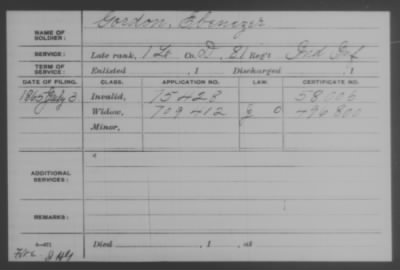 Gordon, Ebenezer
NAME OF
SOLDIER:
SERVICE: Late rank, 1 Lt Co. D, 21 Reg't Ind Inf
TERM OF
SERVICE: Enlisted , 1 Discharged , 1
DATE OF FILING. CLASS. APPLICATION NO. LAW. CERTIFICATE NO.
1865 July 3 Invalid, 75423 58006
Widow, 709412 0 496800
Minor,
ADDITIONAL
SERVICES:
REMARKS:
Died , 1 , at